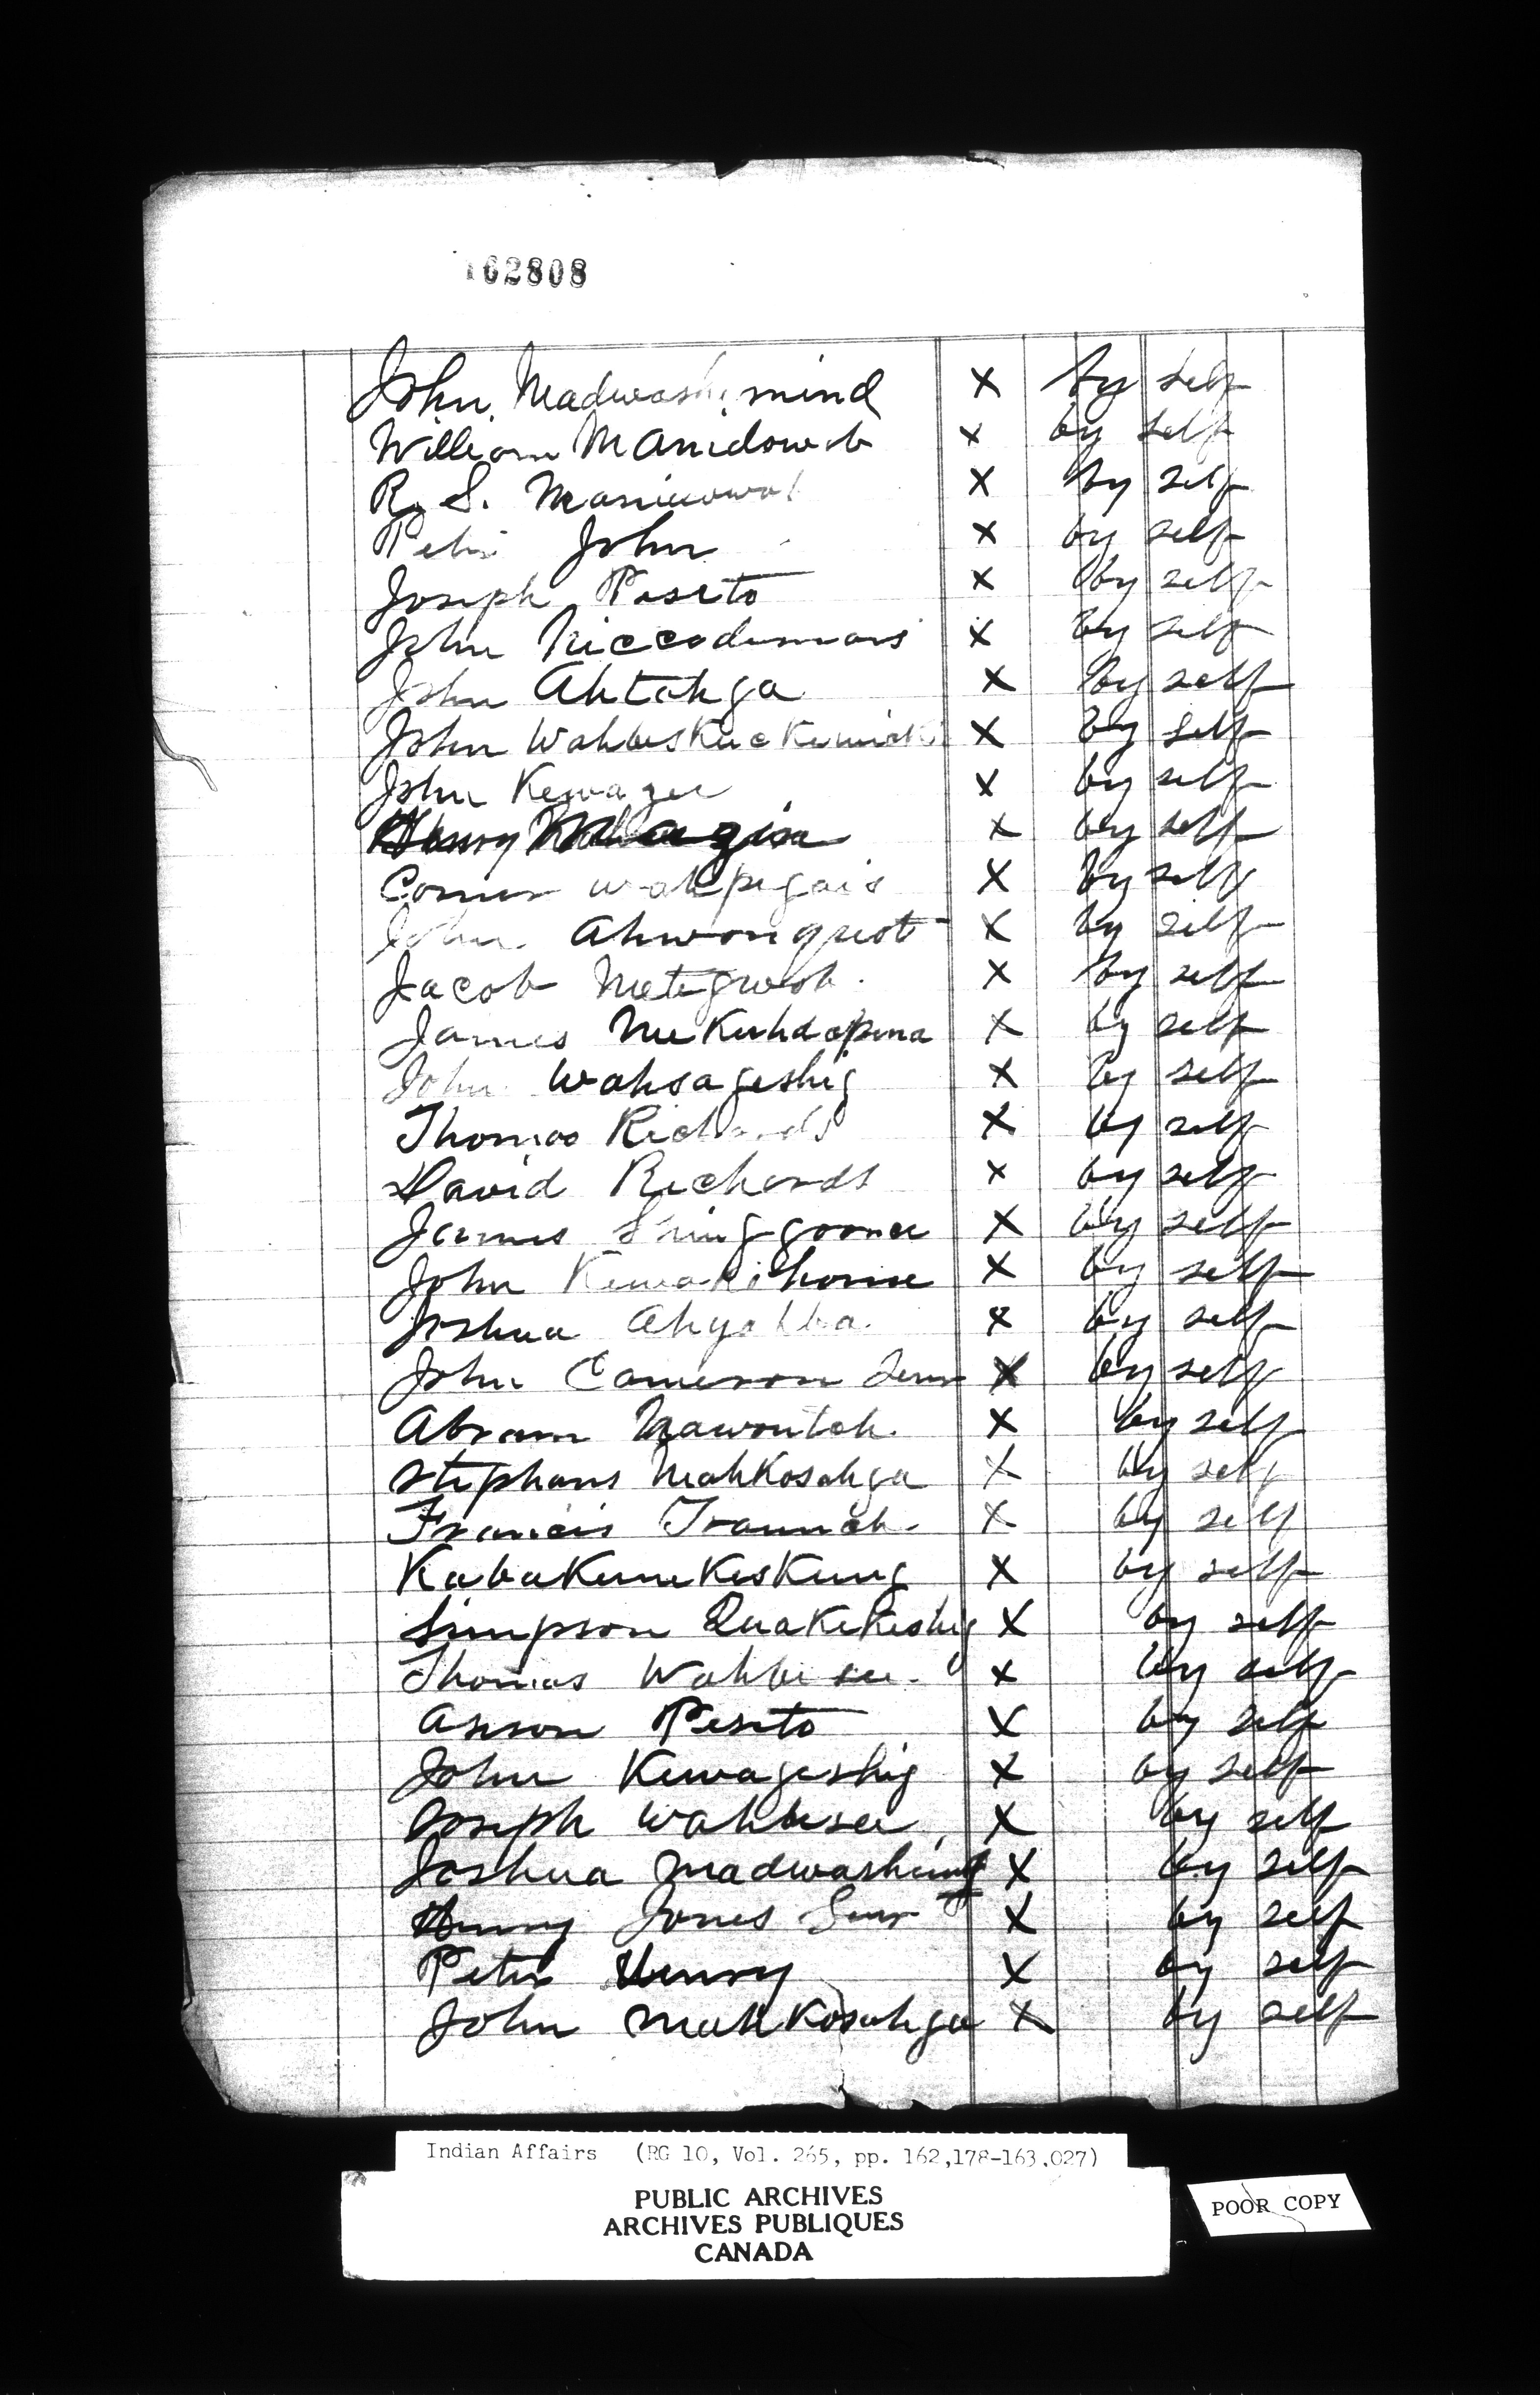 162808
John Madwashimind X by self
William Manidowab X by self
R. S. X by self
Peter John X by self
Joseph Poseto X by self
John Niccodemais X by self
John Ahtahga X by self
John X by self
John Kewagee X by self
Henry X by self
Wahpegais X by self
John Ahwonquot X by self
Jacob Metegwob X by self
James X by self
John Wahsageshig X by self
Thomas Richards X by self
David Richards X by self
James X by self
John X by self
Joshua Ahyabba X by self
John Cameron Senr X by self
Abram Nawontoh X by self
Stephans MahKosahga X by self
Francis X by self
X by self
Simpson QuaKeKeshig X by self
Thomas Wahbesee X by self
Anson Peseto X by self
John Kewageshig X by self
Joseph Wahbesee X by self
Joshua X by self
Henry Jones Senr X by self
Peter Henry X by self
John MahKosahga X by self
Indian Affairs (RG 10, Vol. 265, pp. 162,178-163,027)
PUBLIC ARCHIVES
ARCHIVES PUBLIQUES
CANADA
POOR COPY